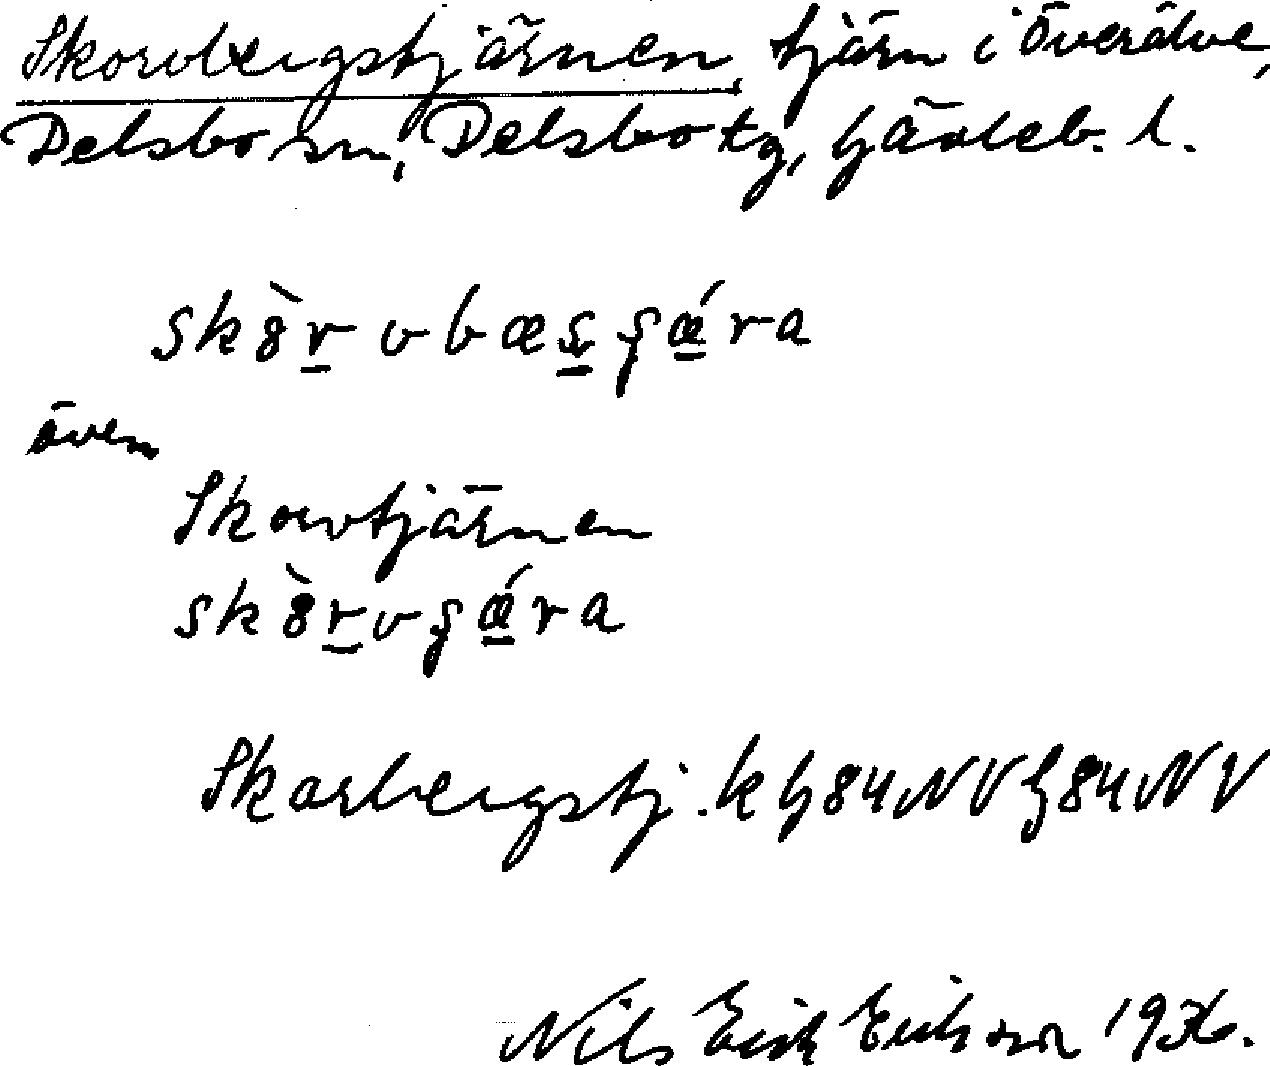 Skorvbergstjärnen, tjärn i Överälve,
Delsbo sn, Delsbo tg, Gävleb. l.
även
Skorvtjärnen
Skarbergstj. k G84NV G84NV
Nils Erik Eriksson 1936.